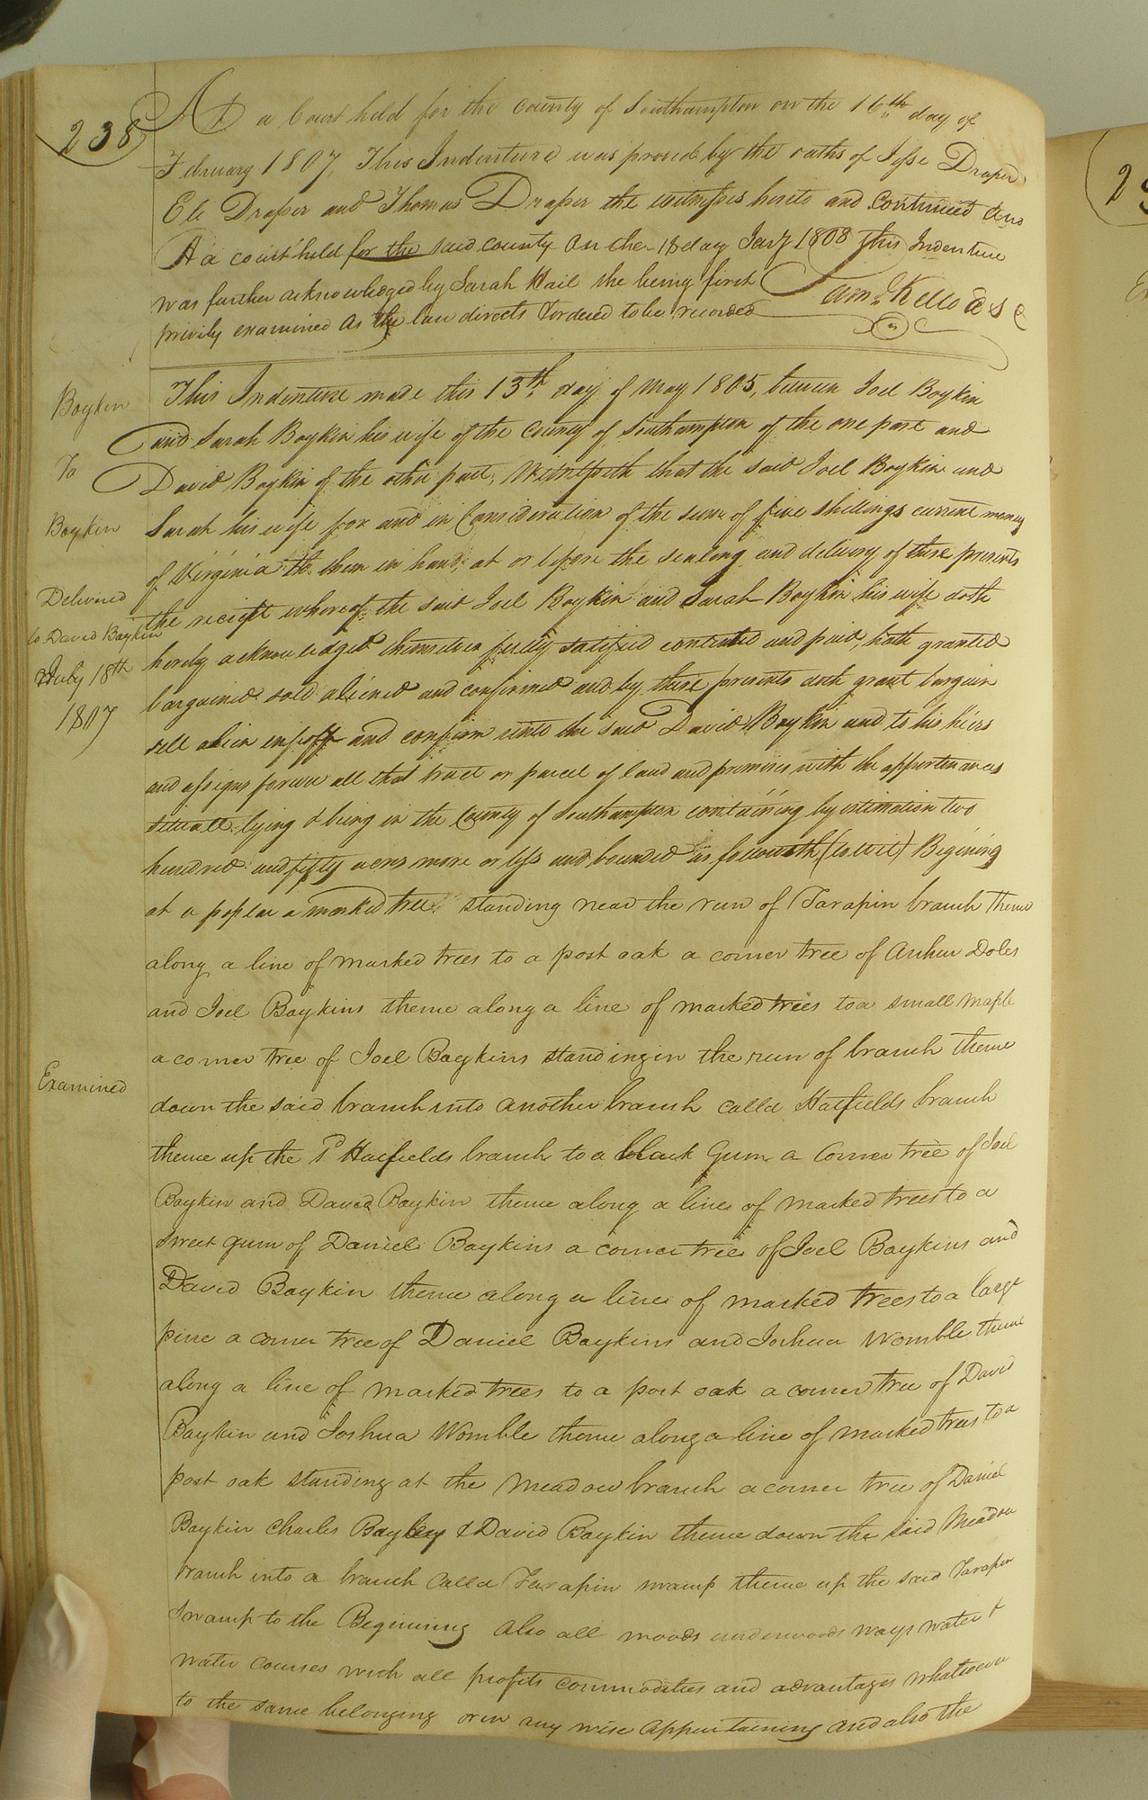 238
At a Court held for the County of Southampton on the 16th day of
February 1807, This Indenture was proved by the oaths of Jesse Draper
Eli Draper and Thomas Draper the witnesses hereto and Continued And
At a court held for the said county On the 18 day Jany 1808 This Indenture
was further acknowledged by Sarah Hail she being first
privily examined As the law directs & ordered to be recorded
Saml Kello D S C
Boykin
To
Boykin
Delivered
to David Boykin
July 18th
1807
This Indenture made this 13th day of May 1805, between Joel Boykin
and Sarah Boykin his wife of the County of Southampton of the one part and
David Boykin of the other part, Witnesseth that the said Joel Boykin and
Sarah his wife for and in Consideration of the sum of five shillings current money
of Virginia to them in hand, at or before the sealing and delivery of these presents
the receipt whereof the said Joel Boykin and Sarah Boykin his wife doth
hereby acknowledged themselves fully satisfied contented and paid, hath granted
bargained sold aliened and confirmed and by these presents doth grant bargain
sell alien enfeoff and confirm unto the said David Boykin and to his heirs
and assigns forever all that tract or parcel of land and premises with the appurtenances
situate lying & being in the County of Southampton containing by estimation two
hundred and fifty acres more or less and bounded as followeth (to wit) Begining
at a poplar a marked tree standing near the run of Tarapin branch thence
along a line of marked trees to a post oak a corner tree of Arthur Doles
and Joel Boykins thence along a line of marked trees to a small maple
a corner tree of Joel Boykins standing in the run of branch thence
Examined
down the said branch into another branch calld Hatfields branch
thence up the sd Hatfields branch to a black Gum a Corner tree of Joel
Boykin and David Boykin thence along a line of marked trees to a
sweet gum of Daniel Boykins a corner tree of Joel Boykins and
David Boykin thence along a line of marked trees to a large
pine a corner tree of Daniel Boykins and Joshua Womble thence
along a line of marked trees to a post oak a corner tree of David
Boykin and Joshua Womble thence along a line of marked trees to a
post oak standing at the Meadow branch a corner tree of Daniel
Boykin Charles Bayley & David Boykin thence down the said Meadow
branch into a branch Calld Tarapin swamp thence up the said Tarapin
Swamp to the Beginning Also all woods underwoods ways water &
water courses with all profits commodities and advantages whatsoever
to the same belonging or in any wise Appertaining and also the